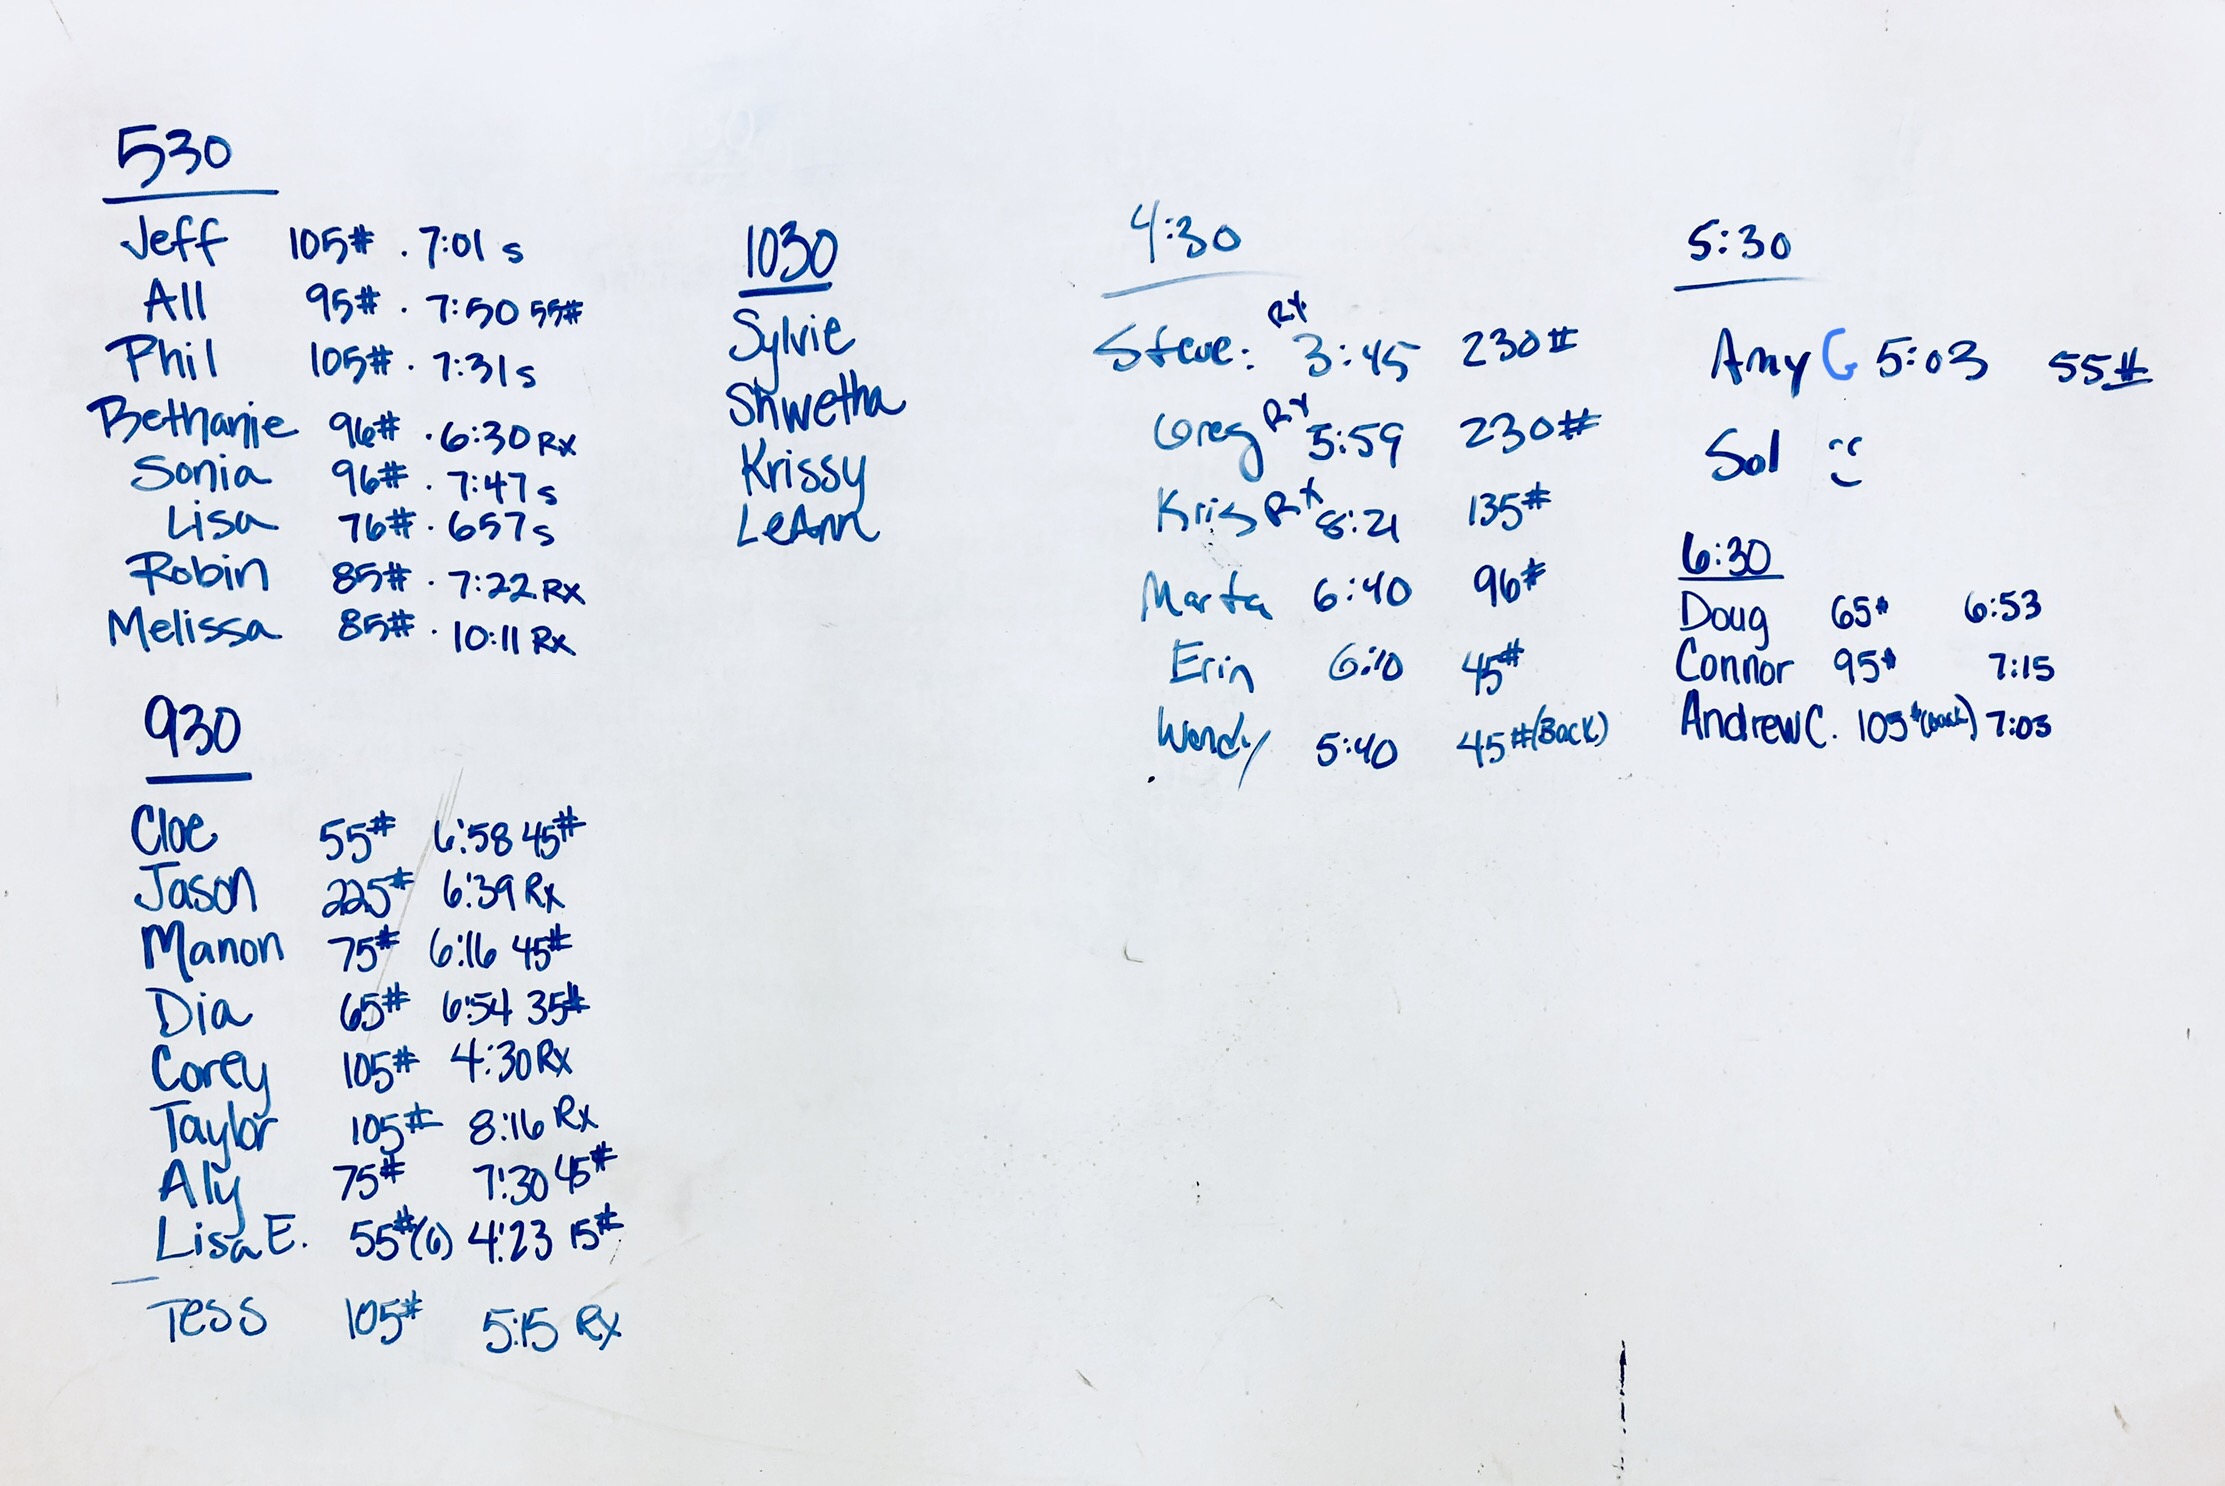 530
Jeff 105# . 7:01 s
All 95# . 7:50 55#
Phil 105# . 7:31 s
Bethanie 96# . 6:30 Rx
Sonia 96# . 7:47 s
Lisa 76# . 657 s
Robin 85# . 7:22 Rx
Melissa 85# . 10:11 Rx
930
Cloe 55# 6:58 45#
Jason 225# 6:39 Rx
Manon 75# 6:16 45#
Dia 65# 6:54 35#
Corey 105# 4:30 Rx
Taylor 105# 8:16 Rx
Aly 75# 7:30 45#
Lisa E. 55#(6) 4:23 15#
Tess 105# 5:15 Rx
1030
Sylvie
Shwetha
Krissy
LeAnn
4:30
Steve: Rx 3:45 230#
Greg Rx 5:59 230#
Kris Rx 8:21 135#
Marta 6:40 96#
Erin 6:10 45#
Wendy 5:40 45#(Back)
5:30
Amy 5:03 55#
Sol :)
6:30
Doug 65# 6:53
Connor 95# 7:15
Andrew C. 105#(back) 7:03